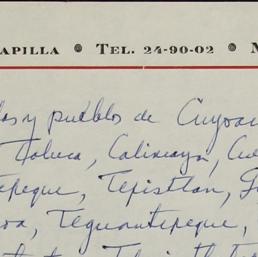 APILLA • TEL. 24-90-02 • M
las y pueblos de Cuyoac
Toluca, Calimaya, Cu
tepeque, Tepistlan, G
oa, Teguantepeque,